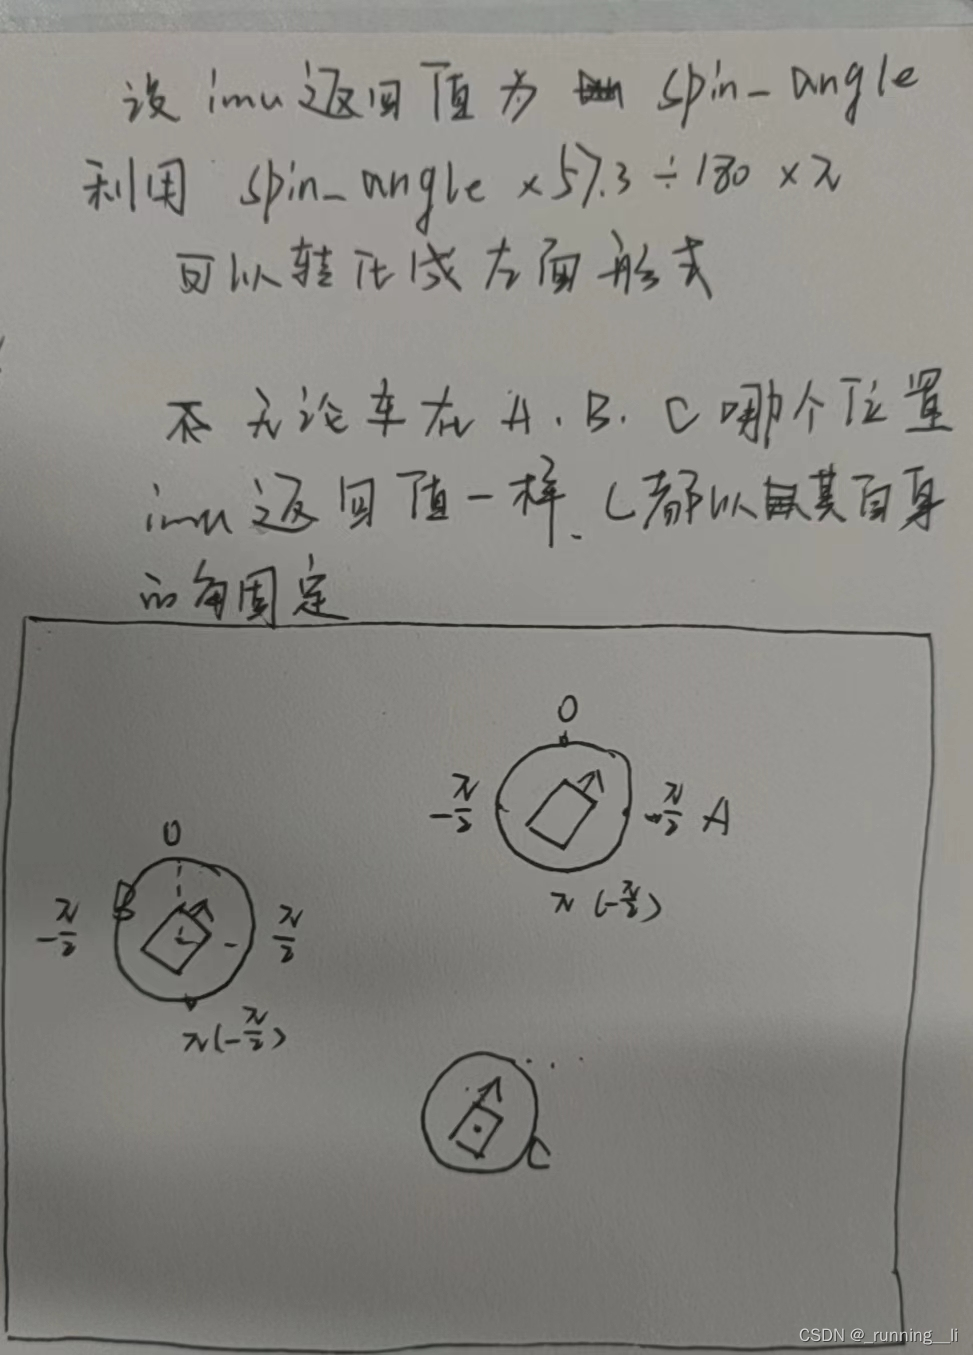 设 imu 返回值为 spin_angle
利用 spin_angle ×57.3 ÷ 180 × π
可以转化成左面形式
无论车在 A、B、C 哪个位置
imu 返回值一样、(都以其自身
的角固定
0
-π/2
π/2 A
π (-π/2)
0
B
-π/2
π/2
π(-π/2)
C
CSDN @_running__li